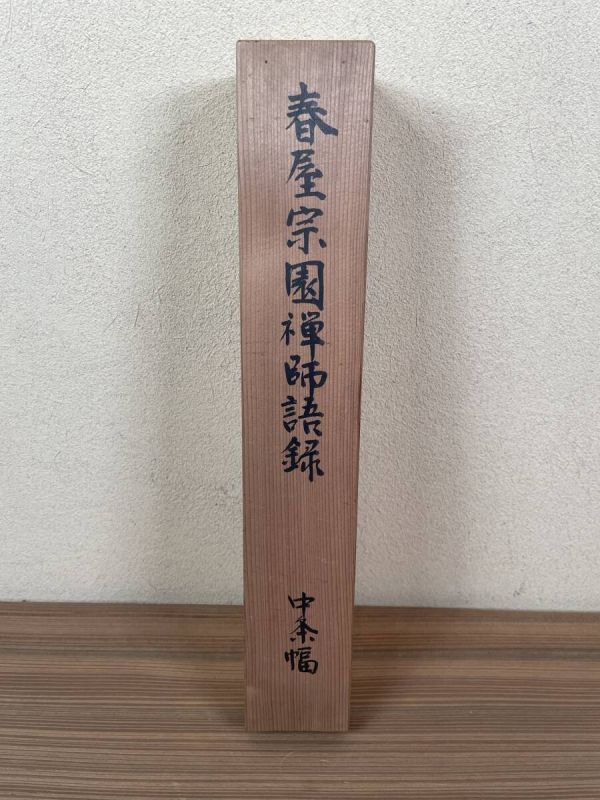 春屋宗園禅師語録
中条幅